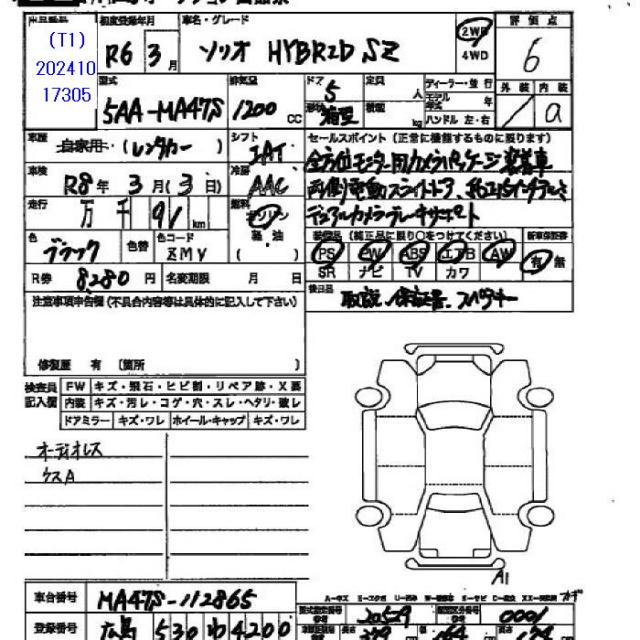 出品番号 初度登録年月 車名・グレード 評価点
(T1) 202410 17305
R6 3月 ソリオ HYBRID SZ 2WD 4WD 6
型式 排気量 ドア 定員 ディーラー・並行 外装 内装
5AA-MA47S 1200 cc 5 人 モデル 年式 年
形状 箱型 積載 kg ハンドル 左・右 a
車歴 自家用・(レンタカー) シフト IAT セールスポイント (正常に機能するものに限ります)
車検 R8年 3月(3日) 冷房 AAC
全方位モニター用カメラパッケージ装着車
両側電動スライドドア
走行 万 千 91 km 燃料 ガソリン 軽油 ( )
デュアルカメラブレーキサポート
色 ブラック 色替 色コード ZMV
装備品 (純正品に限り○をつけてください) 新車保証書
PS PW ABS エアB AW 有 無
SR ナビ TV カワ
R券 8280円 名変期限 月 日
後日品 取説・保証書・スペアキー
注意事項申告欄 (不具合内容等は具体的に記入して下さい)
修復歴 有 (箇所 )
検査員記入欄 FW キズ・飛石・ヒビ割・リペア跡・X要
内装 キズ・汚レ・コゲ・穴・スレ・ヘタリ・破レ
ドアミラー キズ・ワレ ホイール・キャップ キズ・ワレ
オーディオレス
ケスA
A1
車台番号 MA47S-112865
型式指定番号 20529 類別区分番号 0001
登録番号 広島 530 わ 4200